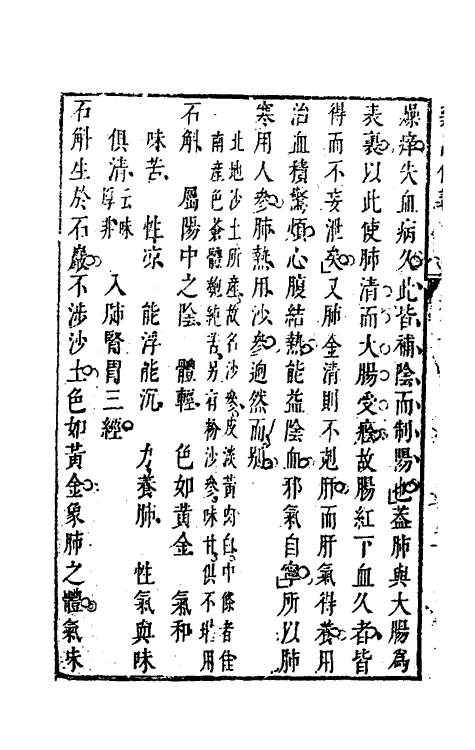 燥痒失血病久此皆補陰而制陽也蓋肺與大腸為
表裏以此使肺清而大腸受癊故腸紅下血久者皆
得而不妄泄矣又肺金清則不剋肝而肝氣得養用
治血積驚煩心腹結熱能益陰血邪氣自寧所以肺
寒用人參肺熱用沙參逈然而別
北地沙土所產故名沙參皮淡黃肉白中條者佳
南產色蒼體匏純苦另有粉沙參味甘俱不堪用
石斛 屬陽中之陰 體輕 色如黃金 氣和
味苦 性凉 能浮能沉 力養肺 性氣與味
俱清云味厚非 入肺腎胃三經
石斛生於石巖不涉沙土色如黃金象肺之體氣味